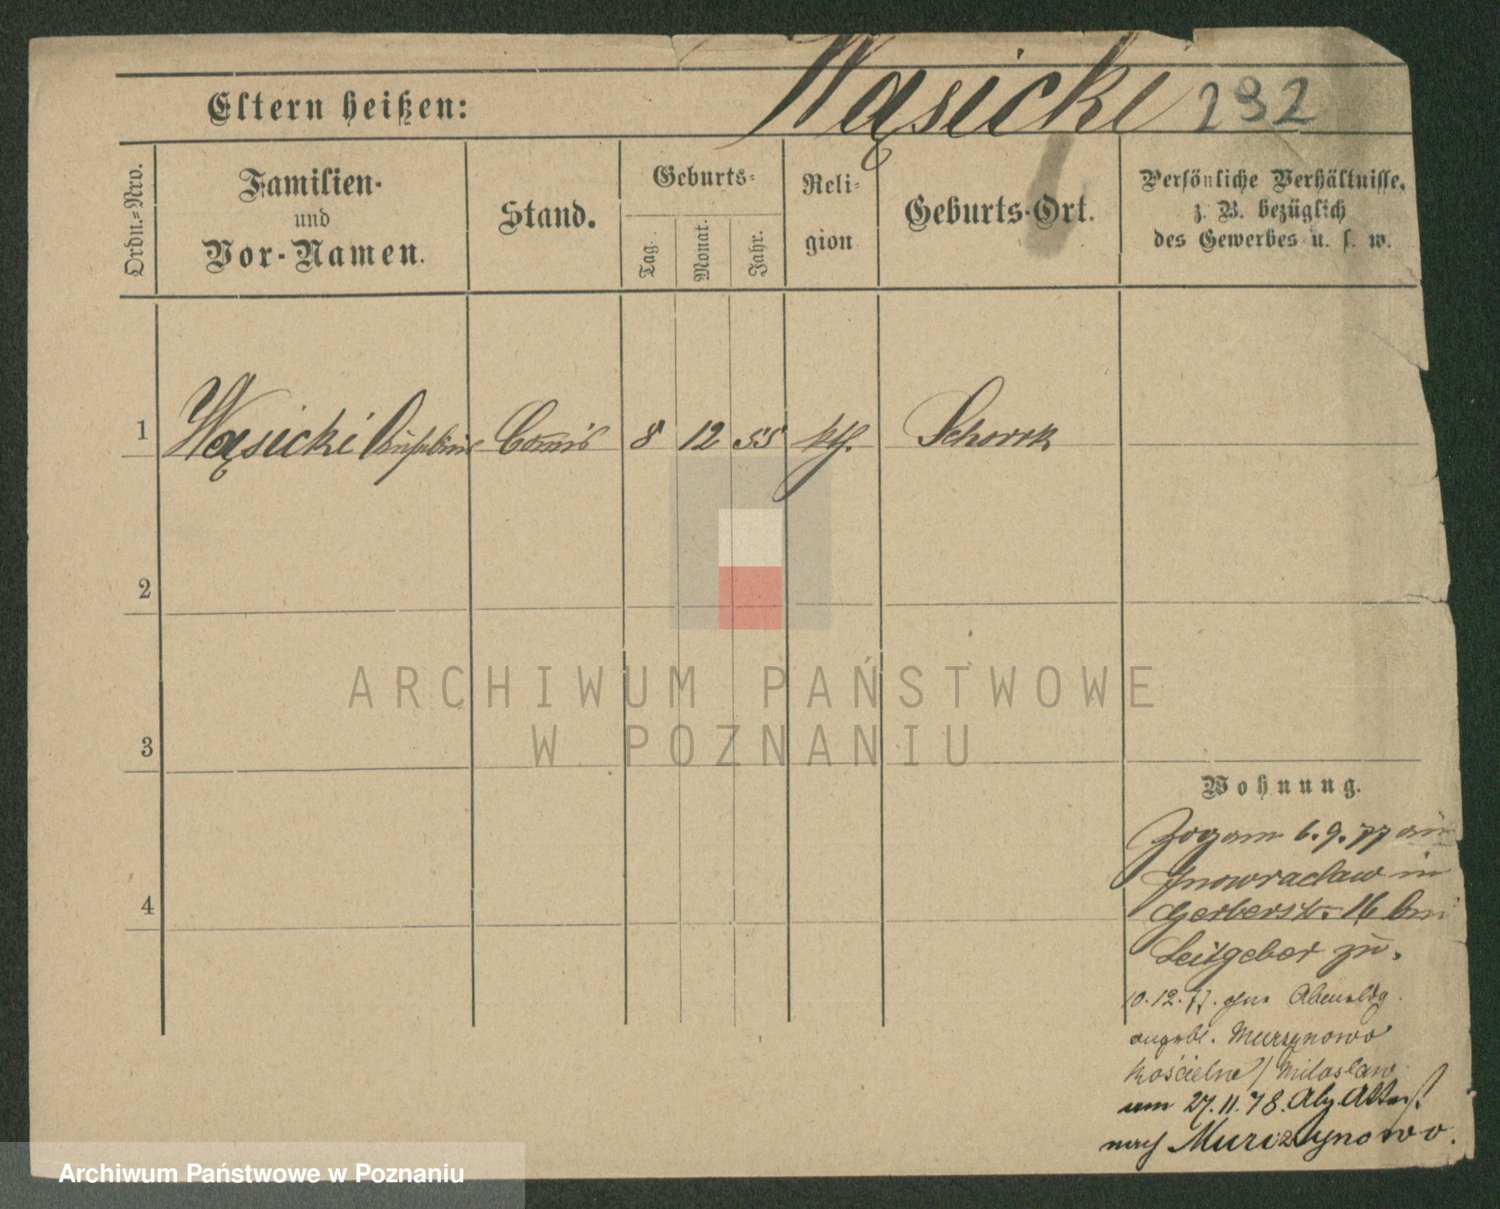 Eltern heißen:
Wąsicki 292
Ordn.=Nro.
Familien-
und
Vor-Namen.
Stand.
Geburts=
Tag.
Monat.
Jahr.
Reli-
gion
Geburts-Ort.
Persönliche Verhältnisse,
z. B. bezüglich
des Gewerbes u. s. w.
1 Wąsicki Comis 8 12 55 kth. Schorrk
2
3
4
Wohnung.
Zog am 6.9.77 aus
Inowraclaw in
Gerberstr. 16 bei
Leitgeber zu.
10.12.77.
angebl. Murzynowo
Kościelne / Miloslaw
um 27.11.78. Abg. Attest
nach Murzynowo.
ARCHIWUM PAŃSTWOWE
W POZNANIU
Archiwum Państwowe w Poznaniu